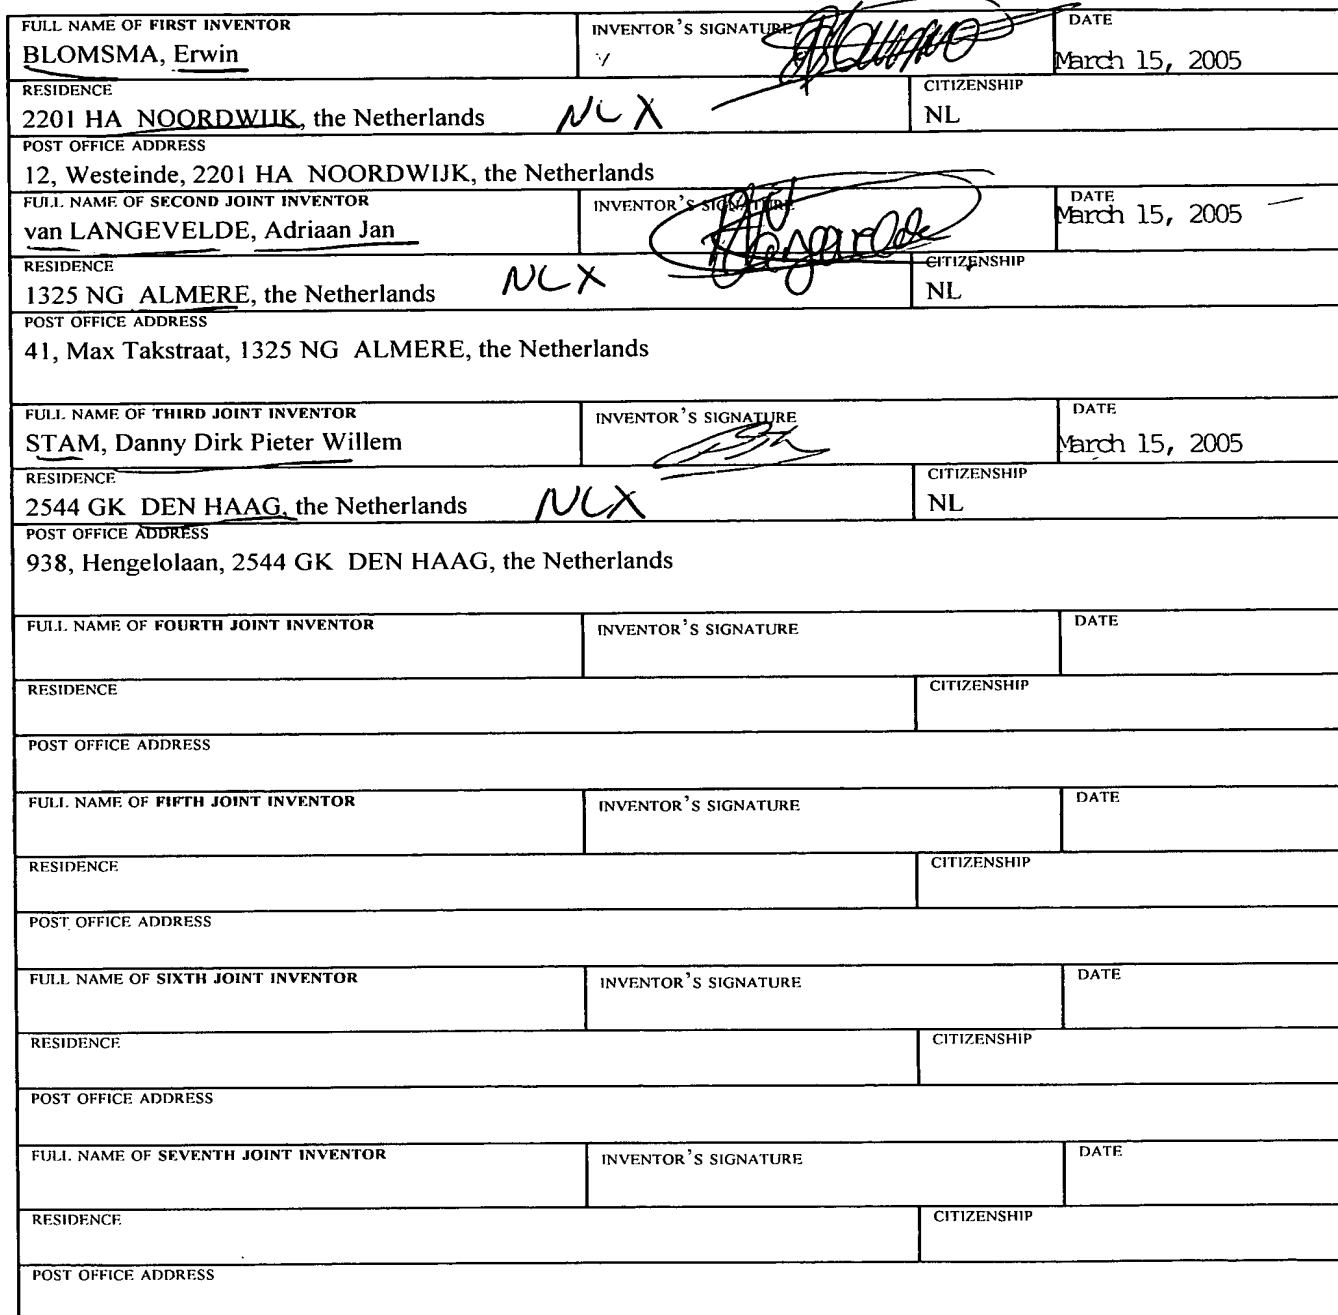 FULL NAME OF FIRST INVENTOR INVENTOR'S SIGNATURE DATE
BLOMSMA, Erwin March 15, 2005
RESIDENCE CITIZENSHIP
2201 HA NOORDWIJK, the Netherlands NLX NL
POST OFFICE ADDRESS
12, Westeinde, 2201 HA NOORDWIJK, the Netherlands
FULL NAME OF SECOND JOINT INVENTOR INVENTOR'S SIGNATURE DATE
van LANGEVELDE, Adriaan Jan March 15, 2005
RESIDENCE CITIZENSHIP
1325 NG ALMERE, the Netherlands NLX NL
POST OFFICE ADDRESS
41, Max Takstraat, 1325 NG ALMERE, the Netherlands
FULL NAME OF THIRD JOINT INVENTOR INVENTOR'S SIGNATURE DATE
STAM, Danny Dirk Pieter Willem March 15, 2005
RESIDENCE CITIZENSHIP
2544 GK DEN HAAG, the Netherlands NLX NL
POST OFFICE ADDRESS
938, Hengelolaan, 2544 GK DEN HAAG, the Netherlands
FULL NAME OF FOURTH JOINT INVENTOR INVENTOR'S SIGNATURE DATE
RESIDENCE CITIZENSHIP
POST OFFICE ADDRESS
FULL NAME OF FIFTH JOINT INVENTOR INVENTOR'S SIGNATURE DATE
RESIDENCE CITIZENSHIP
POST OFFICE ADDRESS
FULL NAME OF SIXTH JOINT INVENTOR INVENTOR'S SIGNATURE DATE
RESIDENCE CITIZENSHIP
POST OFFICE ADDRESS
FULL NAME OF SEVENTH JOINT INVENTOR INVENTOR'S SIGNATURE DATE
RESIDENCE CITIZENSHIP
POST OFFICE ADDRESS